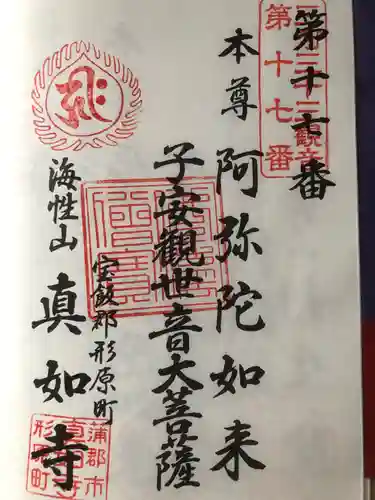 第十七番
三河三十三観音
第十七番
本尊 阿弥陀如来
子安觀世音大菩薩
宝飯郡形原町
海性山 真如寺
蒲郡市
真如寺
形原町